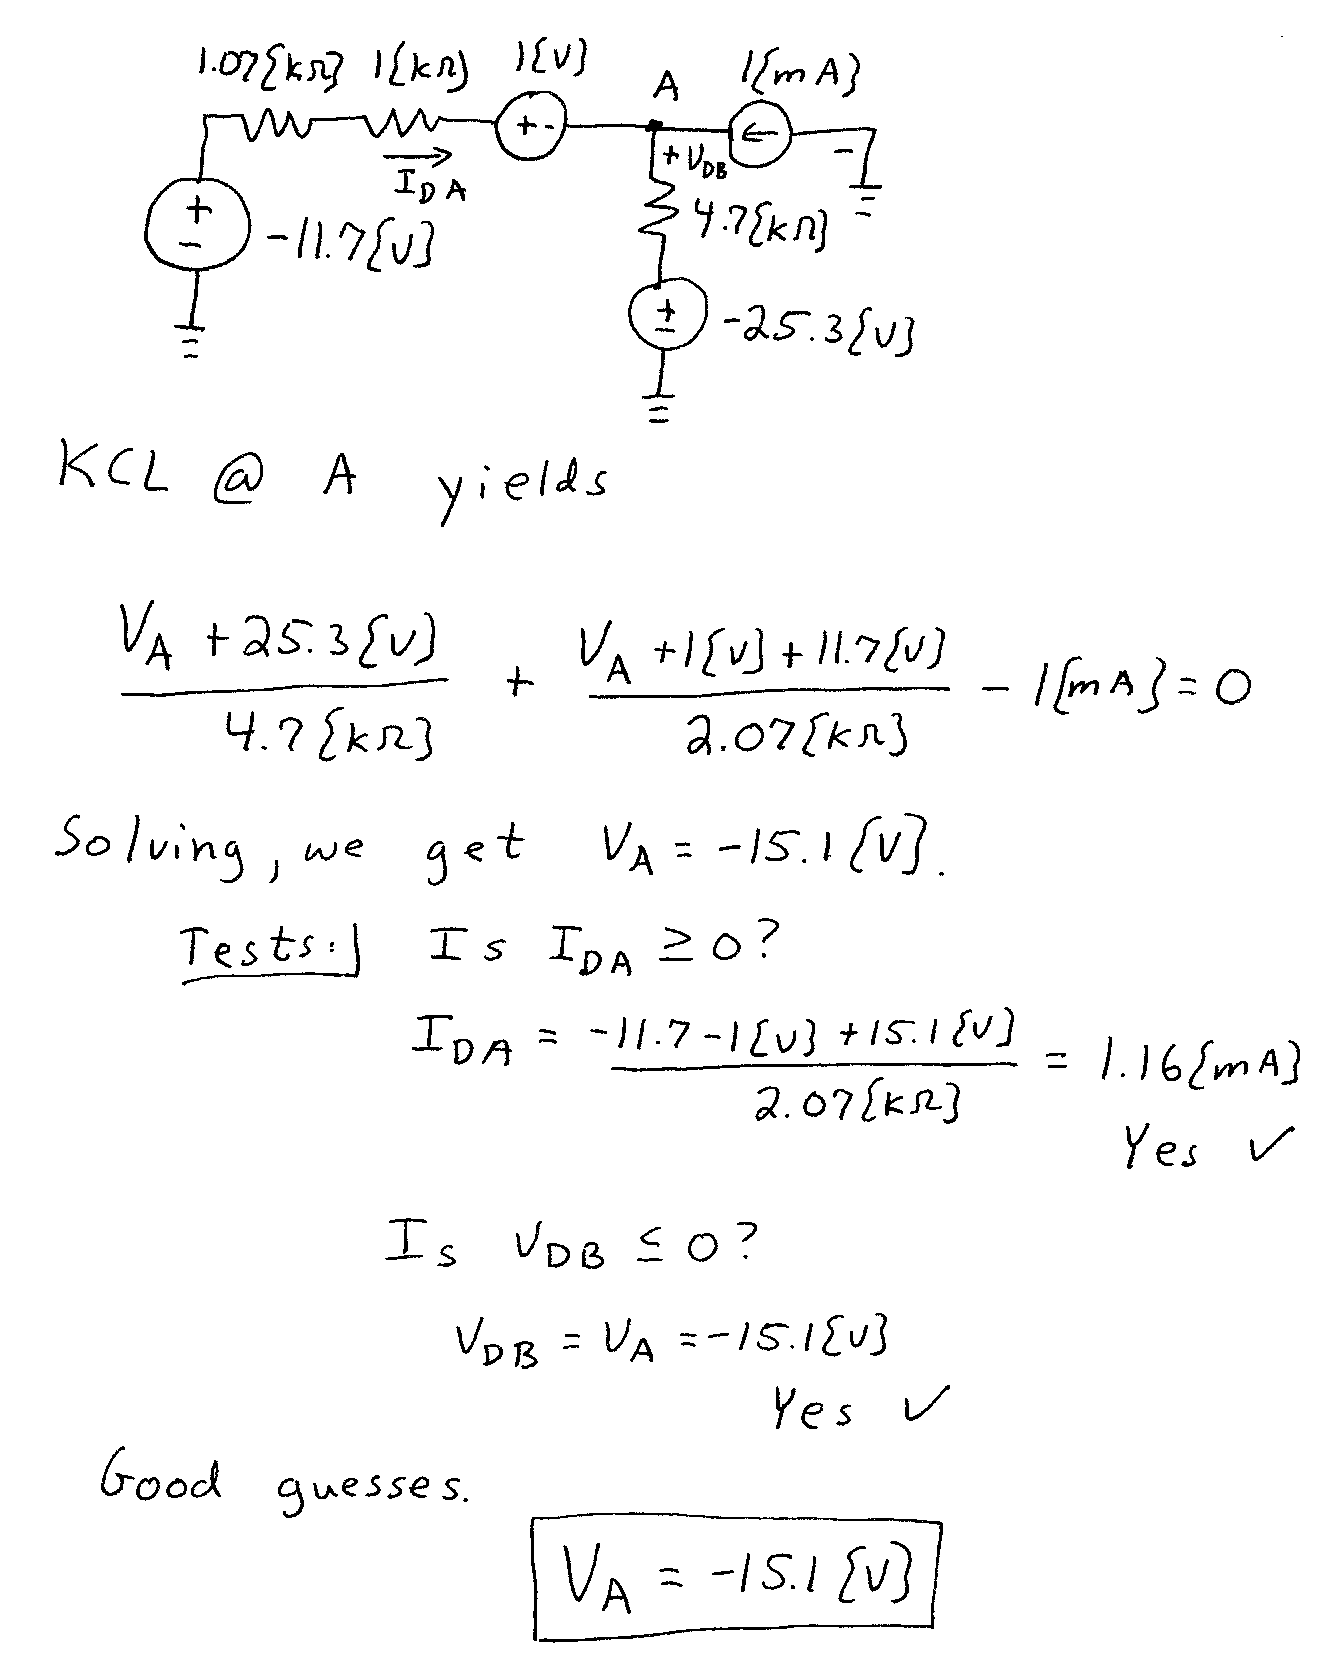 1.07{kΩ} 1{kΩ} 1{V} A 1{mA}
+ - ←
+ V_DB -
I_DA
+ - -11.7{V} 4.7{kΩ}
+ - -25.3{V}
KCL @ A yields
(V_A + 25.3{V}) / 4.7{kΩ} + (V_A + 1{V} + 11.7{V}) / 2.07{kΩ} - 1{mA} = 0
Solving, we get V_A = -15.1{V}.
Tests: Is I_DA ≥ 0?
I_DA = (-11.7 - 1{V} + 15.1{V}) / 2.07{kΩ} = 1.16{mA}
Yes ✓
Is V_DB ≤ 0?
V_DB = V_A = -15.1{V}
Yes ✓
Good guesses.
V_A = -15.1{V}